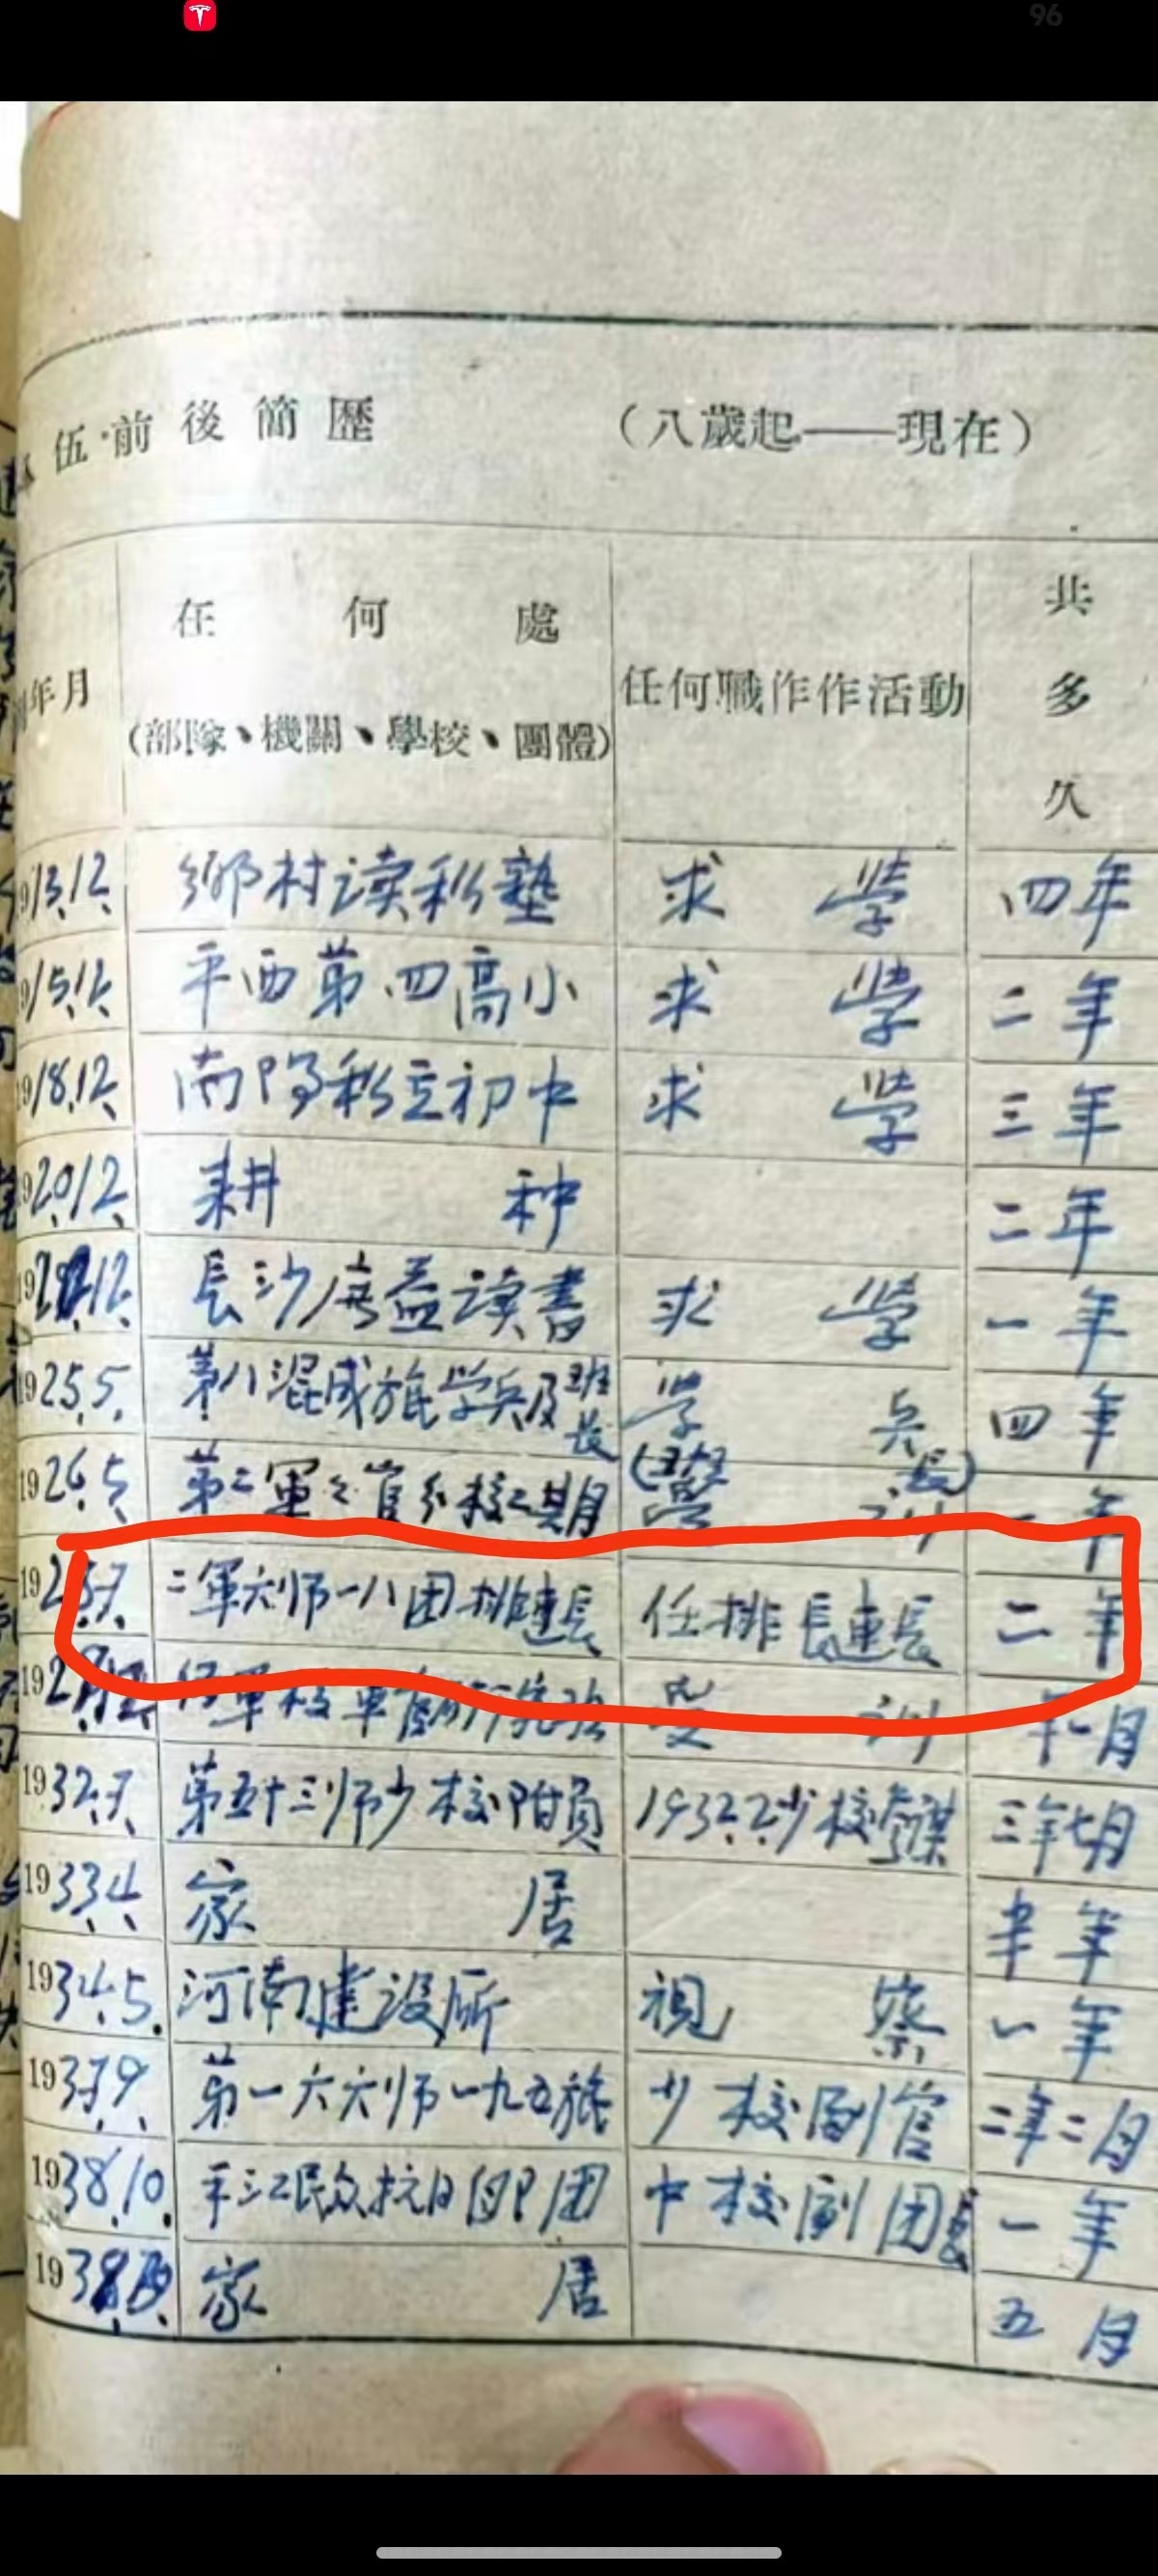 96
伍前後簡歷 (八歲起——現在)
年月 任何處 (部隊、機關、學校、團體) 任何職作作活動 共多久
13.12. 鄉村读私塾 求学 四年
15.12. 平西第四高小 求学 二年
18.12. 南阳私立初中 求学 三年
1920.12. 耕种 二年
12. 長沙广益读書 求学 一年
1925.5. 第八混成旅学兵及班長 学兵(班長) 四年
1926.5. 第二軍官学校二期 训 年
19 7. 二軍六师一八团排連長 任排長連長 二年
19 軍校軍官研究班 受训 年一月
1932.7. 第五十三师少校附員 1932.2.少校參謀 三年七月
1933.4. 家居 半年
1934.5. 河南建设所 視察 一年
1937.9. 第一六六师一九五旅 少校副官 二年二月
1938.10. 平江民众抗日自卫团 中校副团長 一年
1938 家居 五月